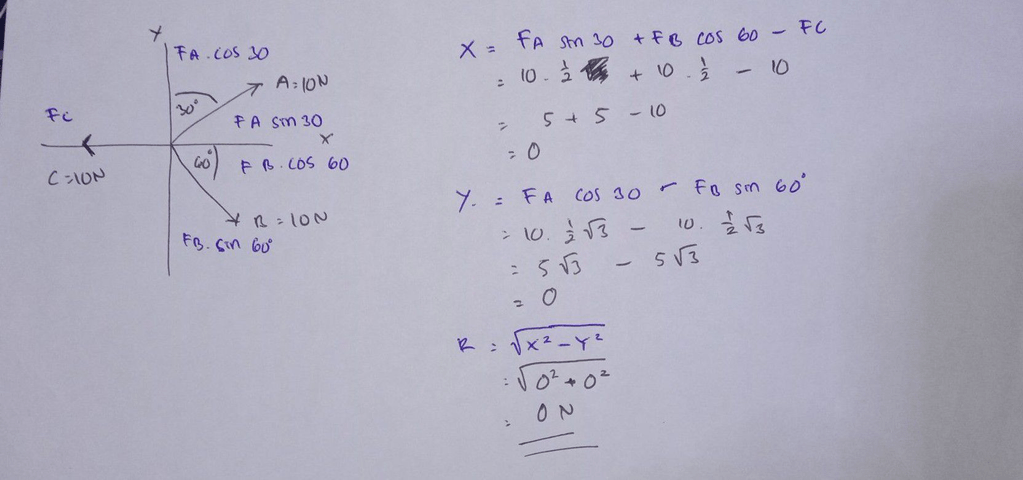 Y
FA . COS 30
A = 10N
30°
FC
FA sin 30
X
60°
F B . COS 60
C = 10N
B = 10N
FB . Sin 60°
X = FA sin 30 + FB cos 60 - FC
= 10 . 1/2 + 10 . 1/2 - 10
= 5 + 5 - 10
= 0
Y. = FA cos 30 - FB sin 60°
= 10 . 1/2 √3 - 10 . 1/2 √3
= 5 √3 - 5 √3
= 0
R = √X² - Y²
= √0² + 0²
= 0 N